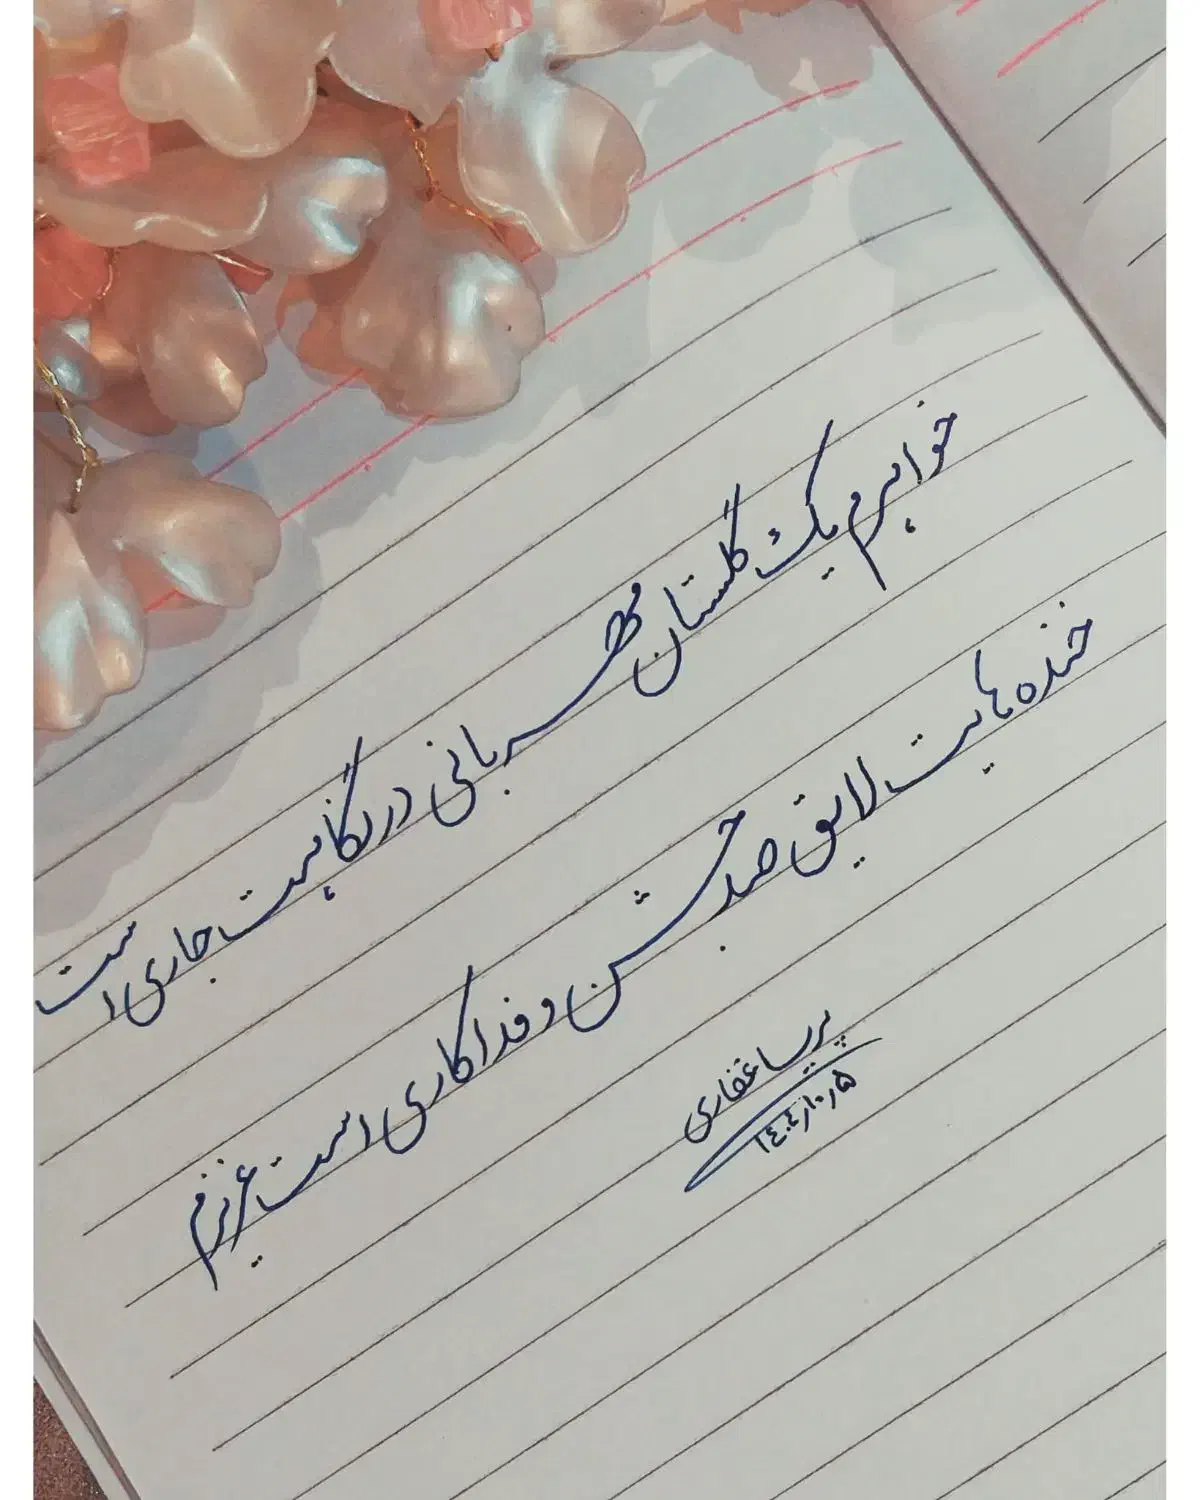 خواهرم یک گلستان مهربانی در نگاهت جاری است
خنده هایت لایق صد جشن و فداکاری است عزیزم
پریسا غفاری
۱۴۰۴/۱۰/۵